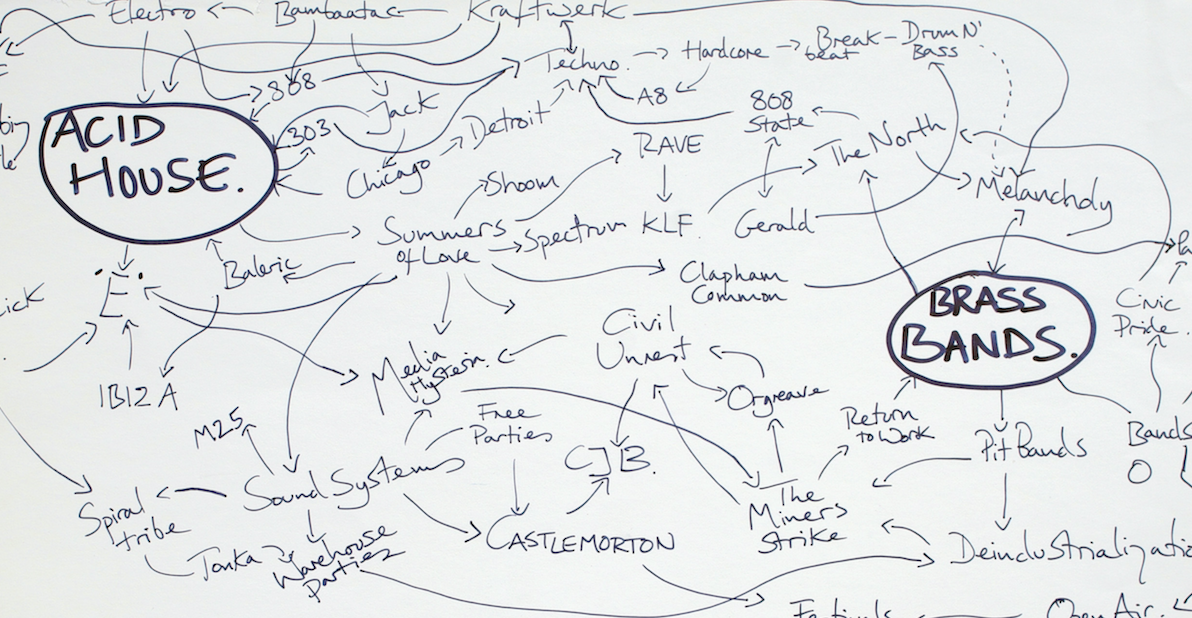 Electro
Bambaataa
Kraftwerk
Techno.
Hardcore
Break-
beat
Drum N'
Bass
808
A8
808
State
ACID
HOUSE.
303
Jack
Detroit
RAVE
The North
Chicago
Shoom
Melancholy
Summers
of Love
Spectrum
KLF.
Gerald
Baleric
Clapham
Common
BRASS
BANDS.
Civic
Pride.
.E.
Civil
Unrest
IBIZA
Media
Hysteria.
Orgreave
Free
Parties
Return
to Work
M25
CJB.
Pit Bands
Bands
Sound Systems
The
Miners
Strike
Spiral
tribe
Tonka
Warehouse
Parties
CASTLEMORTON
Deindustrializatio
Festivals
Open Air.